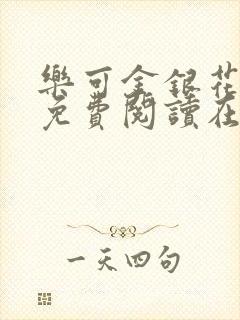 樂可金銀花
免費閱讀在
一天四句